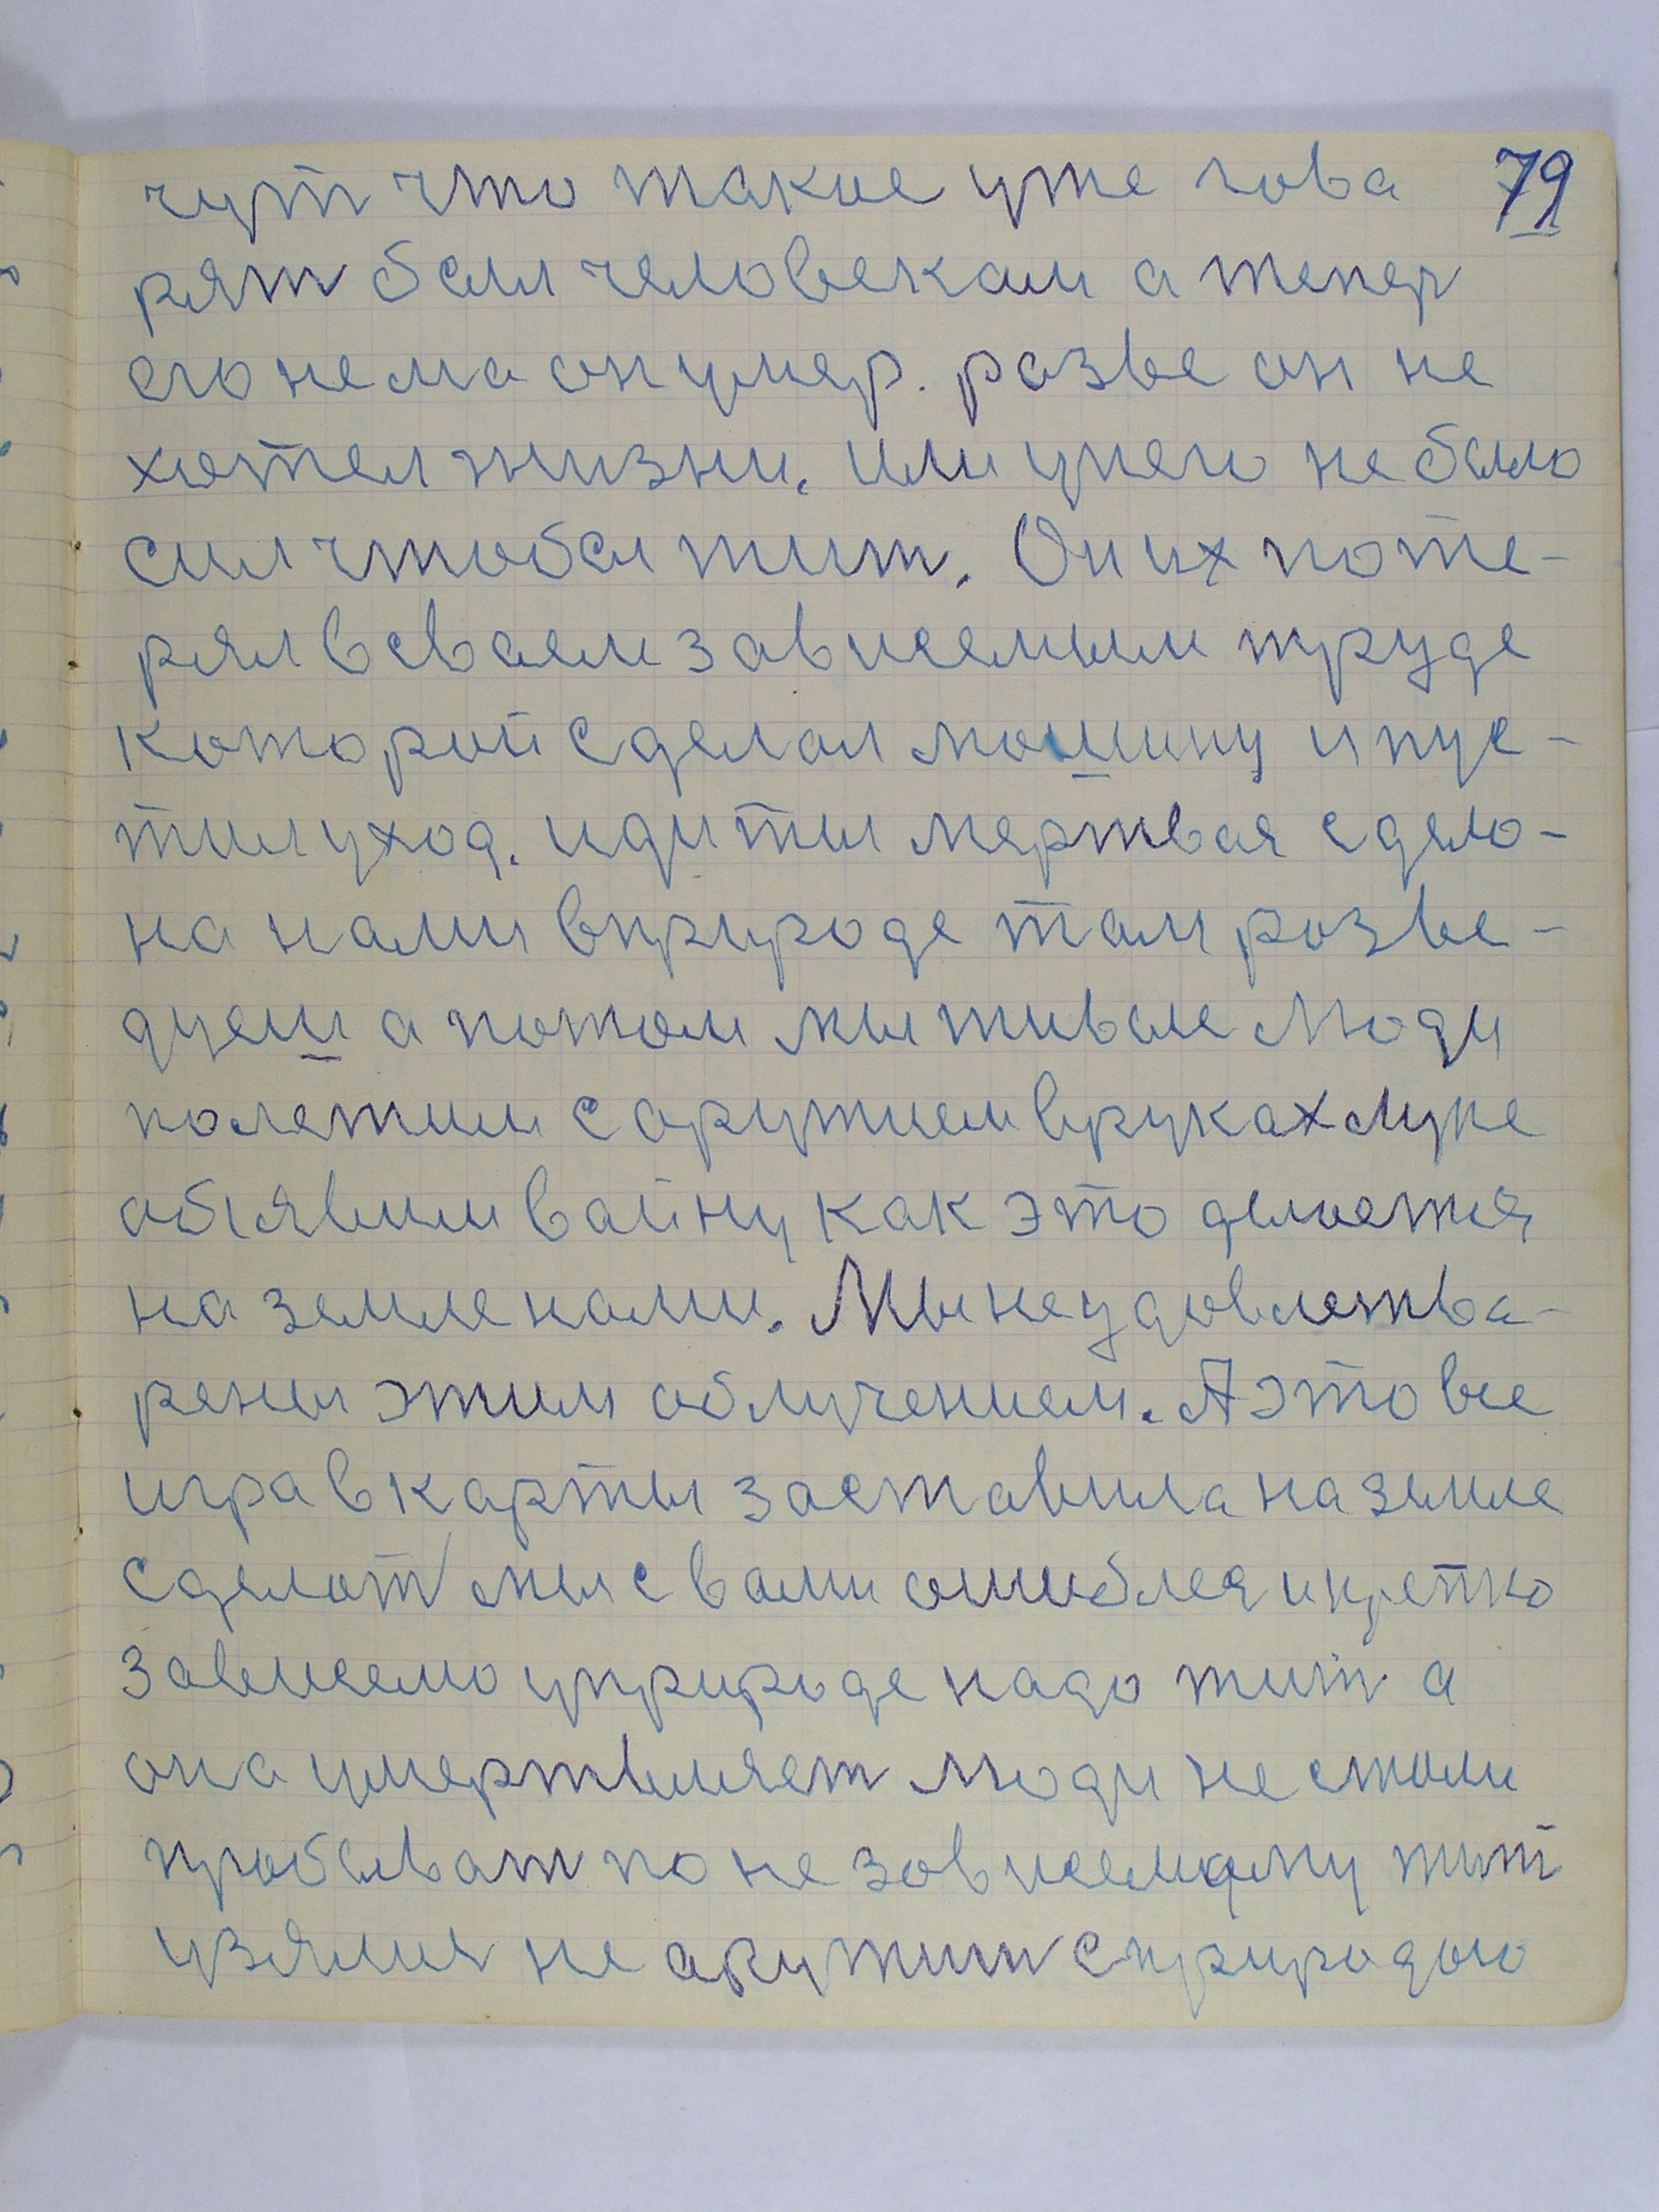 чут что такое уже гова 79
рят был человекам а тепер
его нема он умер. розве он не
хотел жизни. или унего не было
сил чтобы жит. Он их поте-
рял в сваем зависемым труде
которой сделал мошину и пус-
тил уход. иди ты мертвая сдело-
на нами в природе там розве-
дуеш а потом мы живые люди
полетим с аружием в руках луне
обявим вайну как это делоется
на земле нами. Мы неудовлетва-
рены этим облучением. А это все
игра в карты заставила на земле
сделат мы с вами ошиблся и крепко
зависемо у природе надо жит а
она умертвляет люди не стали
пробыват по не зовисемаму жит
узялися не аружим с природою